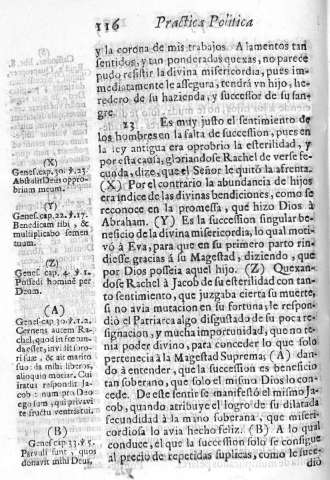 116
Practica Politica
y la corona de mis trabajos. A lamentos tan
sentidos, y tan ponderadas quexas, no parece
pudo resistir la divina misericordia, pues im-
mediatamente le assegura, tendrà vn hijo, he-
redero de su hazienda, y successor de su san-
gre.
23 Es muy justo el sentimiento de
los hombres en la falta de succession, pues en
la ley antigua era oprobrio la esterilidad, y
por esta causa, gloriandose Rachel de verse fe-
cunda, dize, que el Señor le quitò la afrenta.
(X) Por el contrario la abundancia de hijos
era indice de las divinas bendiciones, como se
reconoce en la promessa, que hizo Dios à
Abraham. (Y) Es la succession singular be-
neficio de la divina misericordia, lo qual moti-
vò à Eva, para que en su primero parto rin-
diesse gracias à su Magestad, diziendo, que
por Dios posseìa aquel hijo. (Z) Quexan-
dose Rachel à Jacob de su esterilidad con tan-
to sentimiento, que juzgaba cierta su muerte,
si no avia mutacion en su fortuna, le respon-
diò el Patriarca algo disgustado de su poca re-
signacion, y mucha importunidad, que no te-
nia poder divino, para conceder lo que solo
pertenecia à la Magestad Suprema; (A) dan-
do à entender, que la succession es beneficio
tan soberano, que solo el mismo Dios lo con-
cede. De este sentir se manifestò el mismo Ja-
cob, quando atribuye el logro de su dilatada
fecundidad à la mano soberana, que miseri-
cordiosa lo avia hecho feliz. (B) A lo qual
conduce, el que la succession solo se consigue
al precio de repetidas suplicas, como le suce-
diò
(X)
Genes. cap. 30. ℣. 23.
Abstulit Deus opro-
brium meum.
(Y)
Genes. cap. 22. ℣. 17.
Benedicam tibi, &
multiplicabo semen
tuum.
(Z)
Genes. cap. 4. ℣. 1.
Possedi hominē per
Deum.
(A)
Genes. cap 30. ℣. 1. 2.
Cernens autem Ra-
chel, quod in fœcun-
da esset, invidit soro-
ri suæ: & ait marito
suo: da mihi liberos,
alioquin moriar. Cui
iratus respondit Ja-
cob: num pro Deo
ego sum, qui privavit
te fructu ventris tui.
(B)
Genes cap 33. ℣ 5.
Parvuli sunt, quos
donavit mihi Deus,